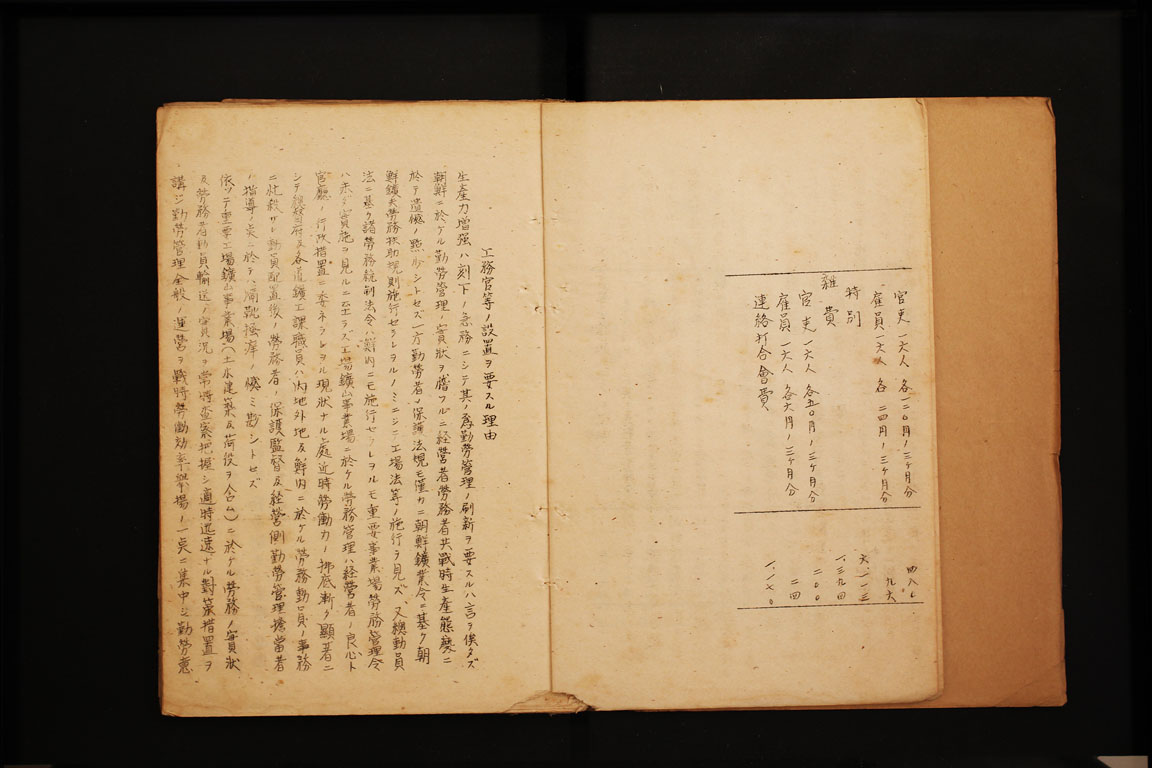 官吏 一六人 各一二〇円ノ三ケ月分
雇員 一六人 各 二四円ノ三ケ月分
特別
雑費
官吏 一六人 各五〇円ノ三ケ月分
雇員 一六人 各六円ノ三ケ月分
連絡打合會費
九六
六.一一三
一.三九四
二〇〇
二四
一.一七〇
工務官等ノ設置ヲ要スル理由
生産力増强ハ刻下ノ急務ニシテ其ノ為勤勞管理ノ刷新ヲ要スルハ言ヲ俟タズ
朝鮮ニ於ケル勤勞管理ノ實狀ヲ ルニ経営者勞務者共戰時生産態勢ニ
於テ遺憾ノ點少シトセズ一方勤勞者ノ保護法規モ僅カニ朝鮮鑛業令ニ基ク朝
鮮鑛夫勞務扶助規則施行セラレヲルノミニシテ工場法等ノ施行ヲ見ズ、又總動員
法ニ基ク諸勞務統制法令ハ鮮内ニモ施行セラレヲルモ重要事業場勞務管理令
ハ未ダ實施ヲ見ルニ至ラズ工場鑛山事業場ニ於ケル勞務管理ハ経営者ノ良心ト
官廳ノ行政措置ニ委ネラレヲル現狀ナル處近時勞働力ノ拂底漸ク顯著ニ
シテ總督府及各道鑛工課職員ハ内地外地及鮮内ニ於ケル勞務動員ノ事務
ニ忙殺サレ動員配置後ノ勞務者ノ保護監督及経営側勤勞管理擔當者
ノ指導ノ点ニ於テハ隔靴搔痒ノ憾ミ尠シトセズ
依ツテ重要工場鑛山事業場(土木建築及荷役ヲ含ム)ニ於ケル勞務ノ實狀
及勞務者動員輸送ノ實況ヲ常時査察把握シ適時迅速ナル對策措置ヲ
講ジ勤勞管理全般ノ運営ヲ戰時勞働効率擧揚ノ一点ニ集中シ勤勞意